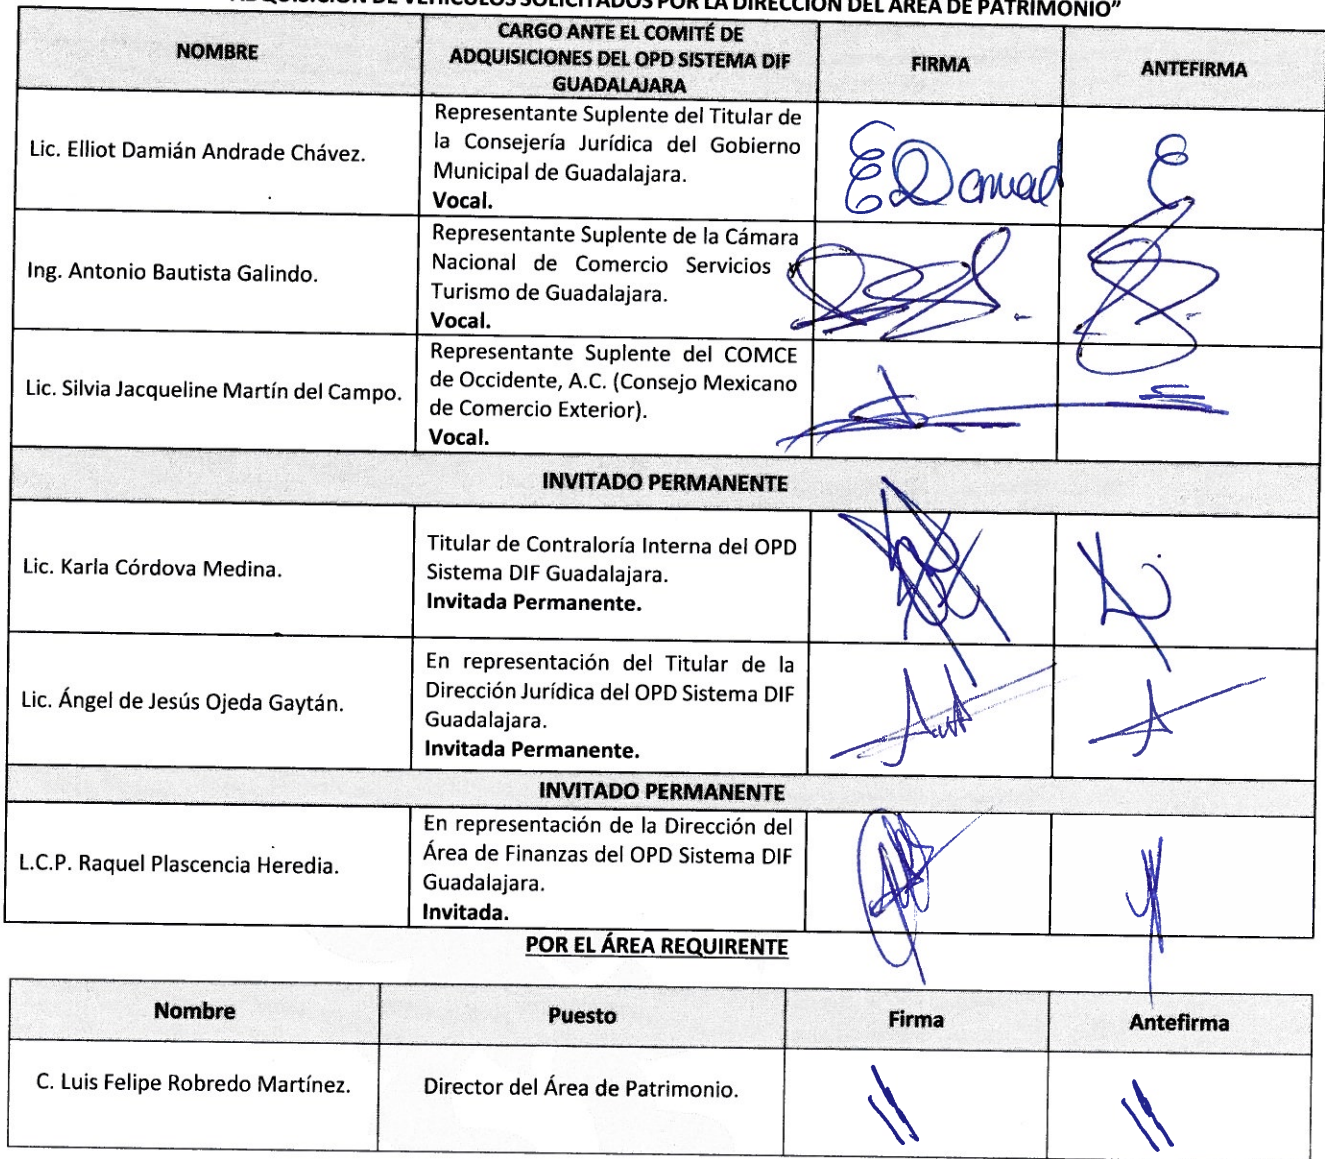 ADQUISICIÓN DE VEHÍCULOS SOLICITADOS POR LA DIRECCIÓN DEL ÁREA DE PATRIMONIO”
NOMBRE
CARGO ANTE EL COMITÉ DE
ADQUISICIONES DEL OPD SISTEMA DIF
GUADALAJARA
FIRMA
ANTEFIRMA
Lic. Elliot Damián Andrade Chávez.
Representante Suplente del Titular de
la Consejería Jurídica del Gobierno
Municipal de Guadalajara.
Vocal.
Ing. Antonio Bautista Galindo.
Representante Suplente de la Cámara
Nacional de Comercio Servicios y
Turismo de Guadalajara.
Vocal.
Lic. Silvia Jacqueline Martín del Campo.
Representante Suplente del COMCE
de Occidente, A.C. (Consejo Mexicano
de Comercio Exterior).
Vocal.
INVITADO PERMANENTE
Lic. Karla Córdova Medina.
Titular de Contraloría Interna del OPD
Sistema DIF Guadalajara.
Invitada Permanente.
Lic. Ángel de Jesús Ojeda Gaytán.
En representación del Titular de la
Dirección Jurídica del OPD Sistema DIF
Guadalajara.
Invitada Permanente.
INVITADO PERMANENTE
L.C.P. Raquel Plascencia Heredia.
En representación de la Dirección del
Área de Finanzas del OPD Sistema DIF
Guadalajara.
Invitada.
POR EL ÁREA REQUIRENTE
Nombre
Puesto
Firma
Antefirma
C. Luis Felipe Robredo Martínez.
Director del Área de Patrimonio.